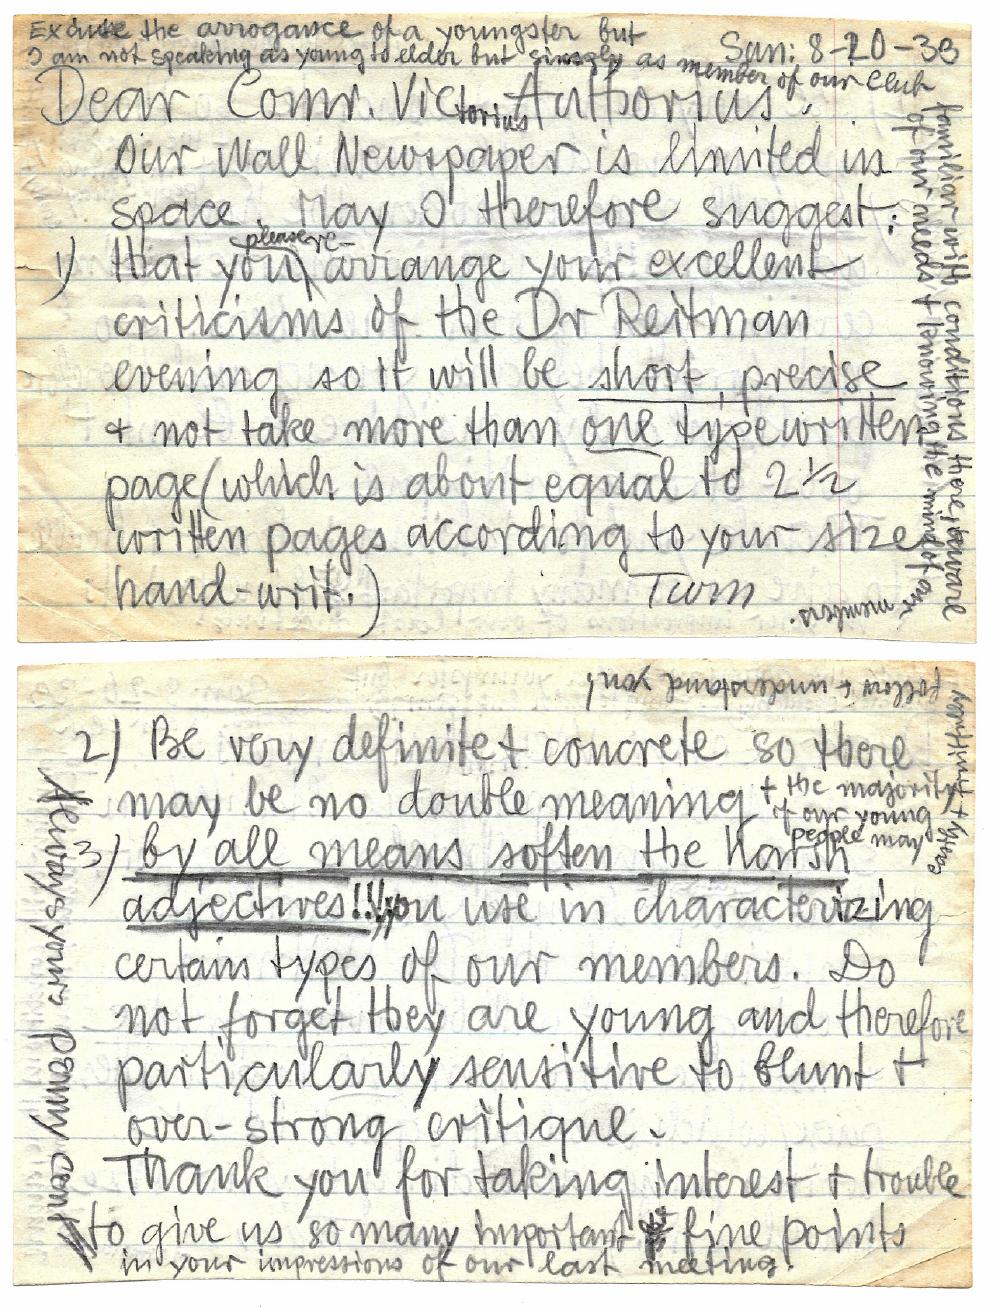 Excuse the arrogance of a youngster but
I am not speaking as young to elder but simply as member of our Club
familiar with conditions there, aware
of our needs + knowing the mind of our
members.
Sun: 8-20-33
Dear Comr. Victorius Authorius,
Our Wall Newspaper is limited in
space. May I therefore suggest:
1) that you please re-arrange your excellent
criticisms of the Dr Reitman
evening so it will be short, precise
+ not take more than one typewritten
page (which is about equal to 2 1/2
written pages according to your size
hand-writ.)
Turn
2) Be very definite + concrete so there
may be no double meaning + the majority
of our young
people may
follow + understand you!
3) by all means soften the harsh
adjectives!!! you use in characterizing
certain types of our members. Do
not forget they are young and therefore
particularly sensitive to blunt +
over-strong critique.
Thank you for taking interest + trouble
to give us so many important fine points
in your impressions of our last meeting!
Always yours penny cent